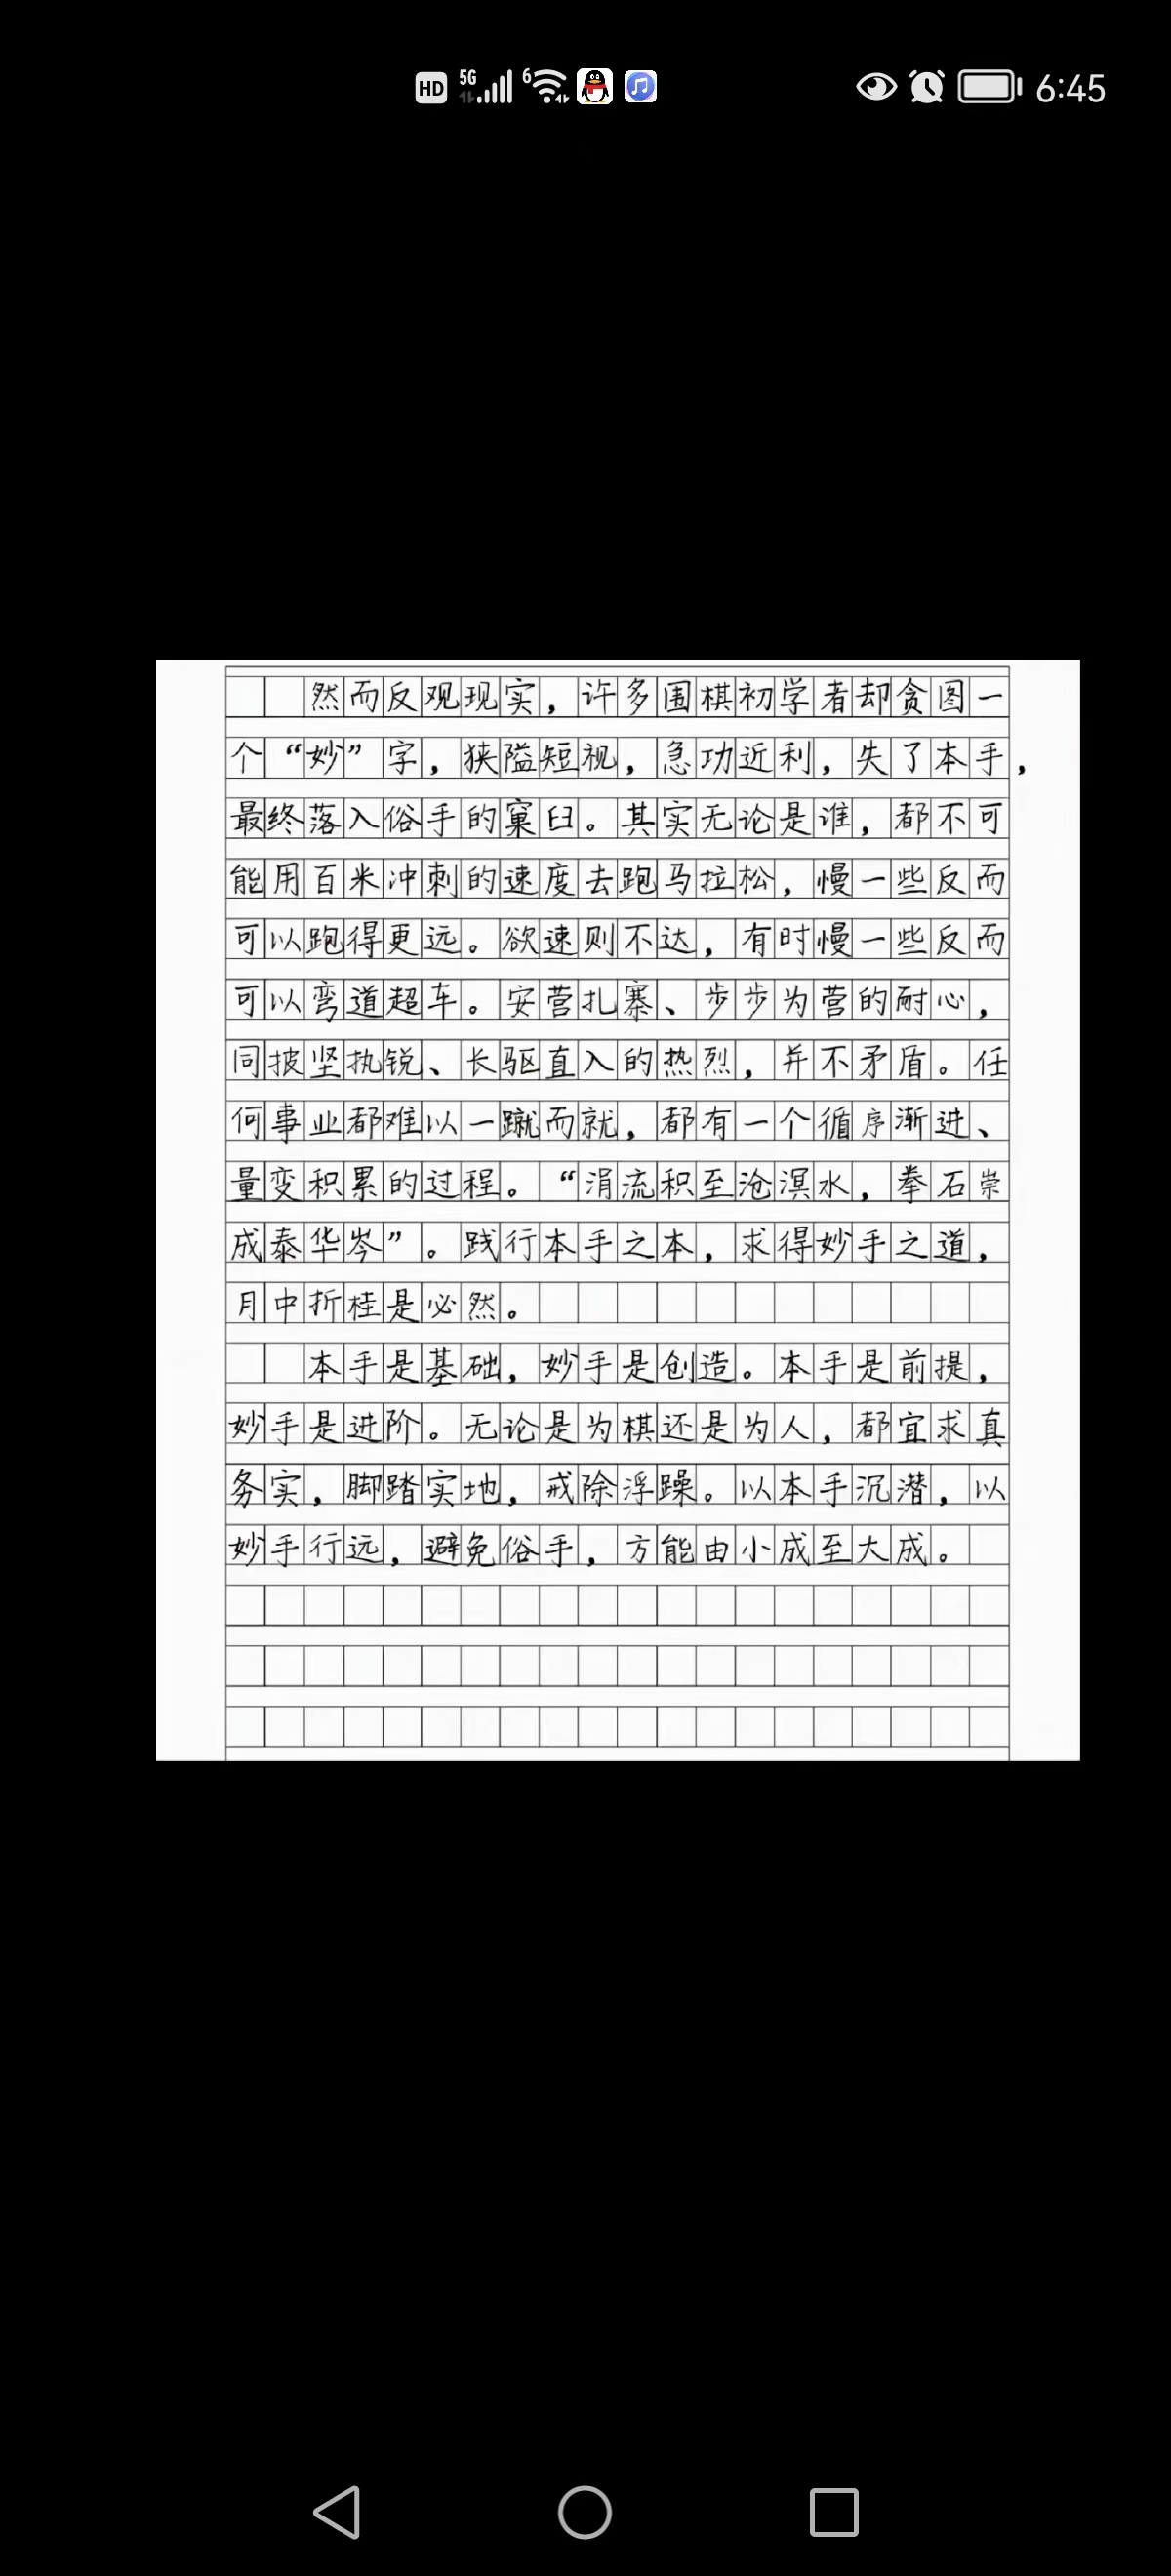 HD 5G 6 6:45
然而反观现实，许多围棋初学者却贪图一
个“妙”字，狭隘短视，急功近利，失了本手，
最终落入俗手的窠臼。其实无论是谁，都不可
能用百米冲刺的速度去跑马拉松，慢一些反而
可以跑得更远。欲速则不达，有时慢一些反而
可以弯道超车。安营扎寨、步步为营的耐心，
同披坚执锐、长驱直入的热烈，并不矛盾。任
何事业都难以一蹴而就，都有一个循序渐进、
量变积累的过程。“涓流积至沧溟水，拳石崇
成泰华岑”。践行本手之本，求得妙手之道，
月中折桂是必然。
本手是基础，妙手是创造。本手是前提，
妙手是进阶。无论是为棋还是为人，都宜求真
务实，脚踏实地，戒除浮躁。以本手沉潜，以
妙手行远，避免俗手，方能由小成至大成。